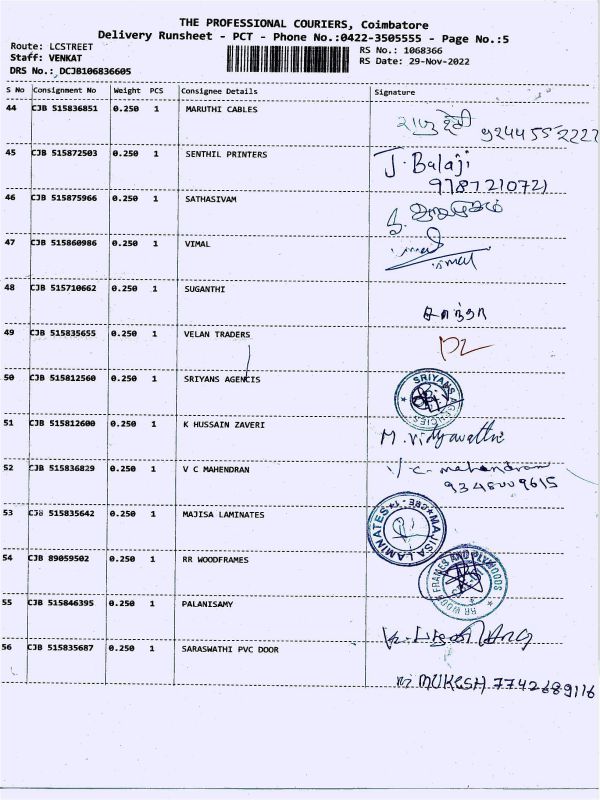 THE PROFESSIONAL COURIERS, Coimbatore
Delivery Runsheet - PCT - Phone No.:0422-3505555 - Page No.:5
Route: LCSTREET
Staff: VENKAT
DRS No.: DCJB106836605
RS No.: 1068366
RS Date: 29-Nov-2022
S No Consignment No Weight PCS Consignee Details Signature
44 CJB 515836851 0.250 1 MARUTHI CABLES 9244552222
45 CJB 515872503 0.250 1 SENTHIL PRINTERS J. Balaji
9787210721
46 CJB 515875966 0.250 1 SATHASIVAM
47 CJB 515860986 0.250 1 VIMAL
48 CJB 515710662 0.250 1 SUGANTHI
49 CJB 515835655 0.250 1 VELAN TRADERS
50 CJB 515812560 0.250 1 SRIYANS AGENCIS SRIYANS AGENCIES
51 CJB 515812600 0.250 1 K HUSSAIN ZAVERI M. Vidyavathi
52 CJB 515836829 0.250 1 V C MAHENDRAN V C. mahendran
9345009615
53 CJB 515835642 0.250 1 MAJISA LAMINATES MAJISA LAMINATES CBE - 1
54 CJB 89059502 0.250 1 RR WOODFRAMES RR WOOD FRAMES AND PLYWOODS
55 CJB 515846395 0.250 1 PALANISAMY
56 CJB 515835687 0.250 1 SARASWATHI PVC DOOR MUKESH 7742689116